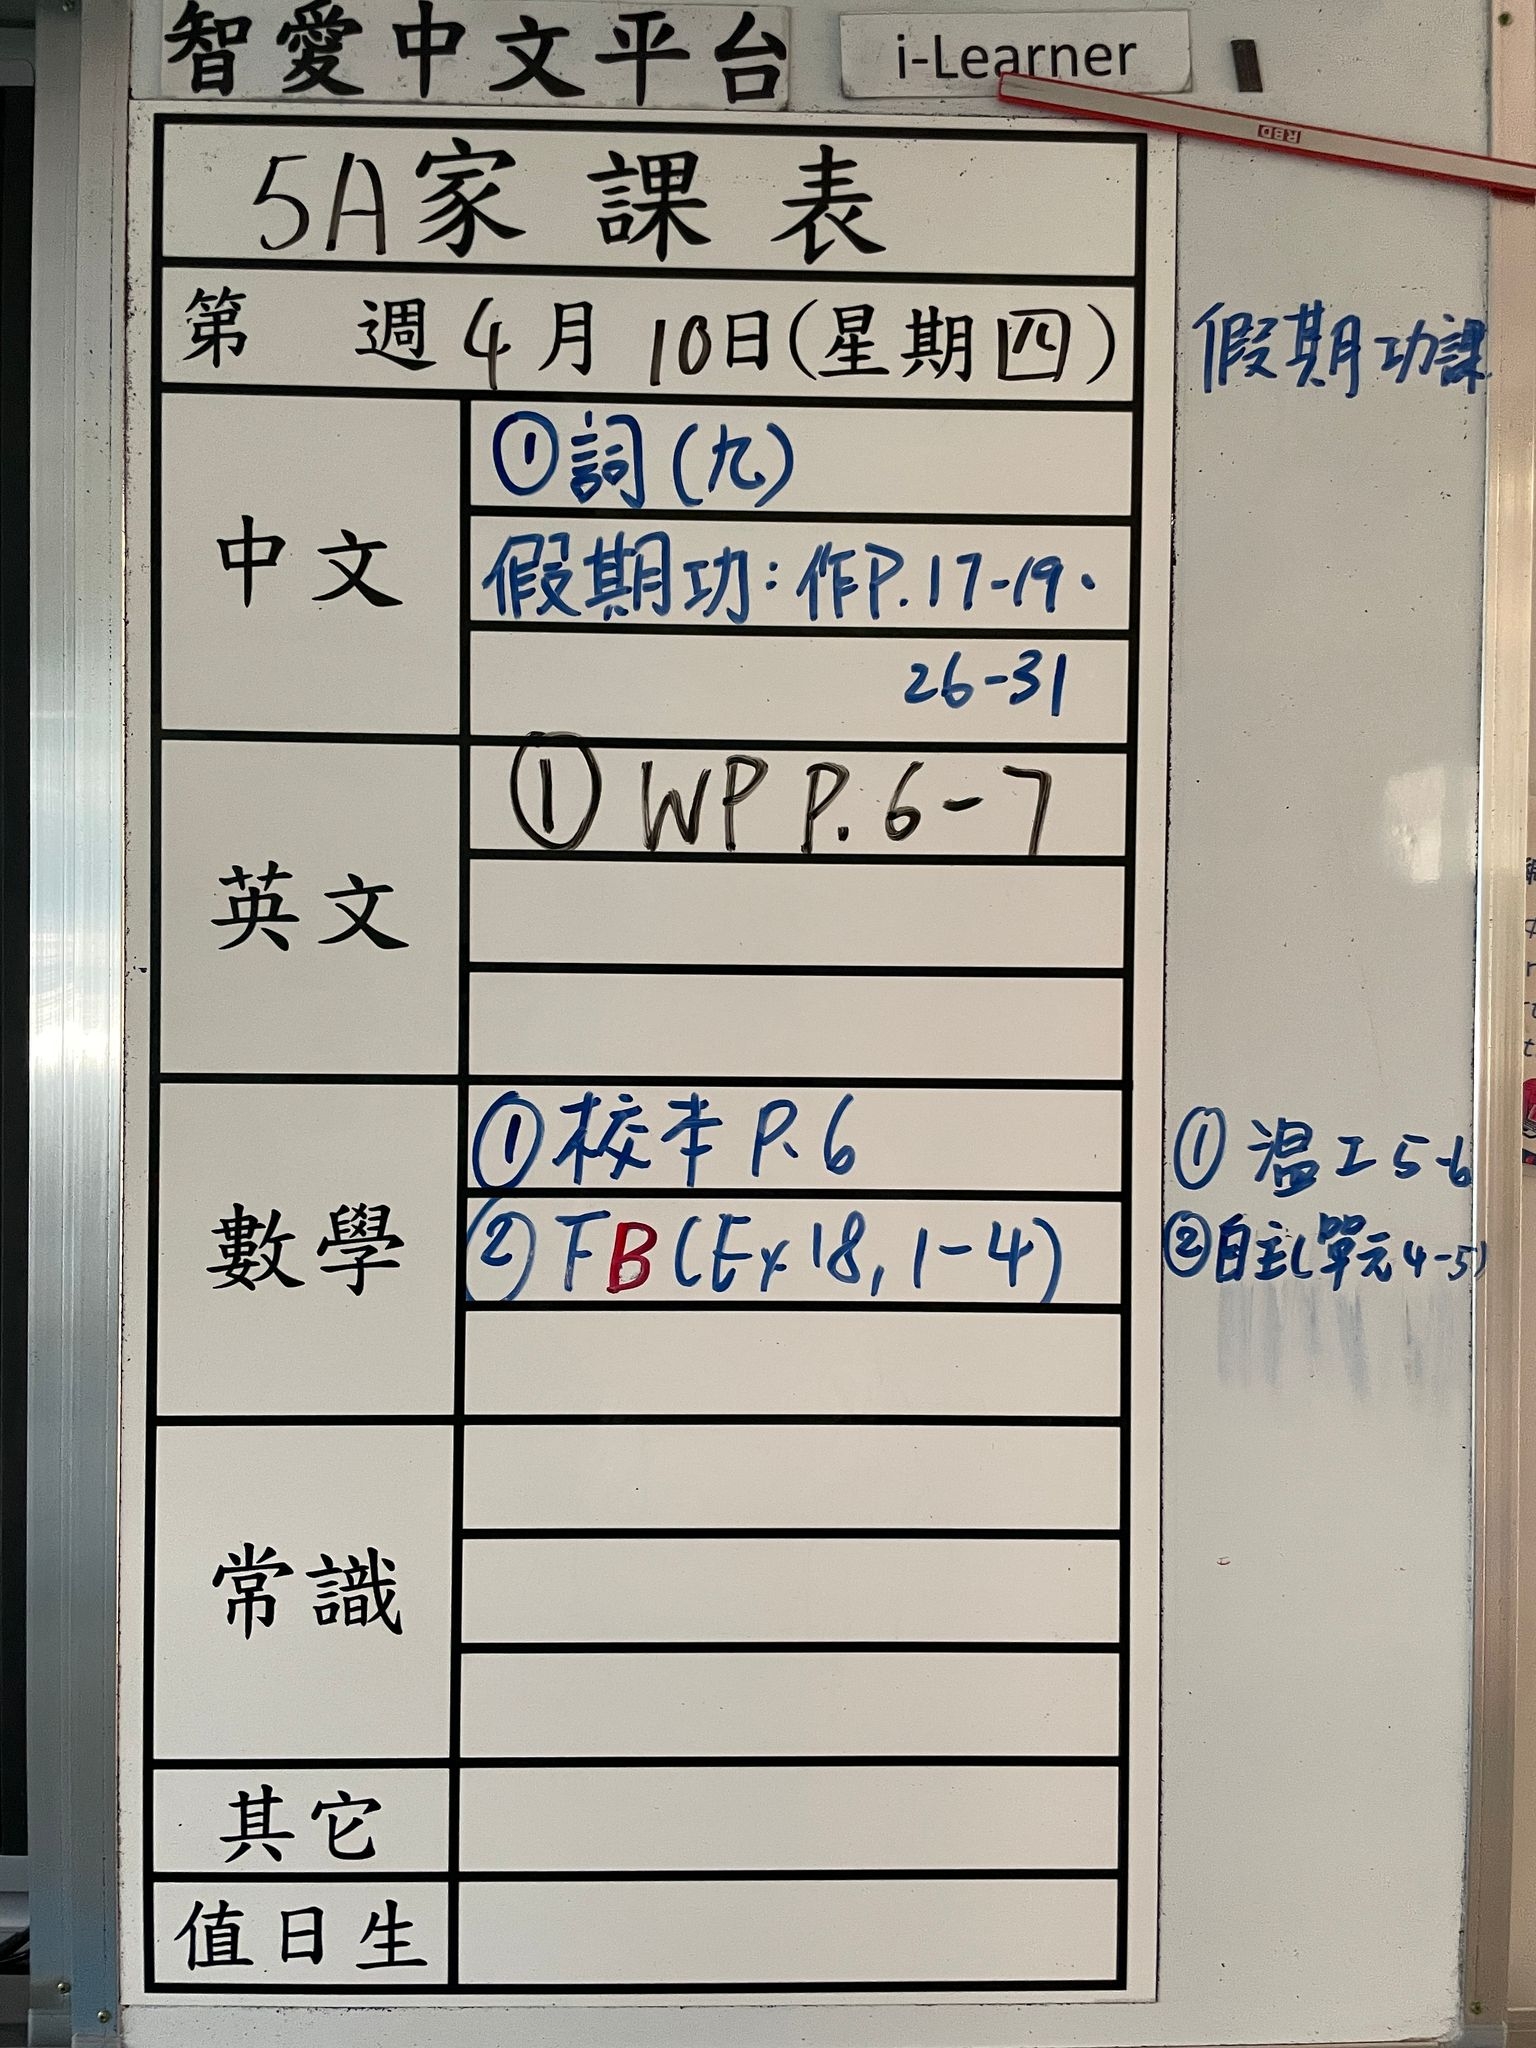 智愛中文平台 i-Learner
RBD
5A家課表
第 週 4月 10日(星期四)
假期功課
中文
①詞(九)
假期功:作P.17-19.
26-31
英文
① WP P.6-7
數學
①校本 P.6
① 溫工5-6
②FB(Ex18,1-4)
②自主(單元4-5)
常識
其它
值日生